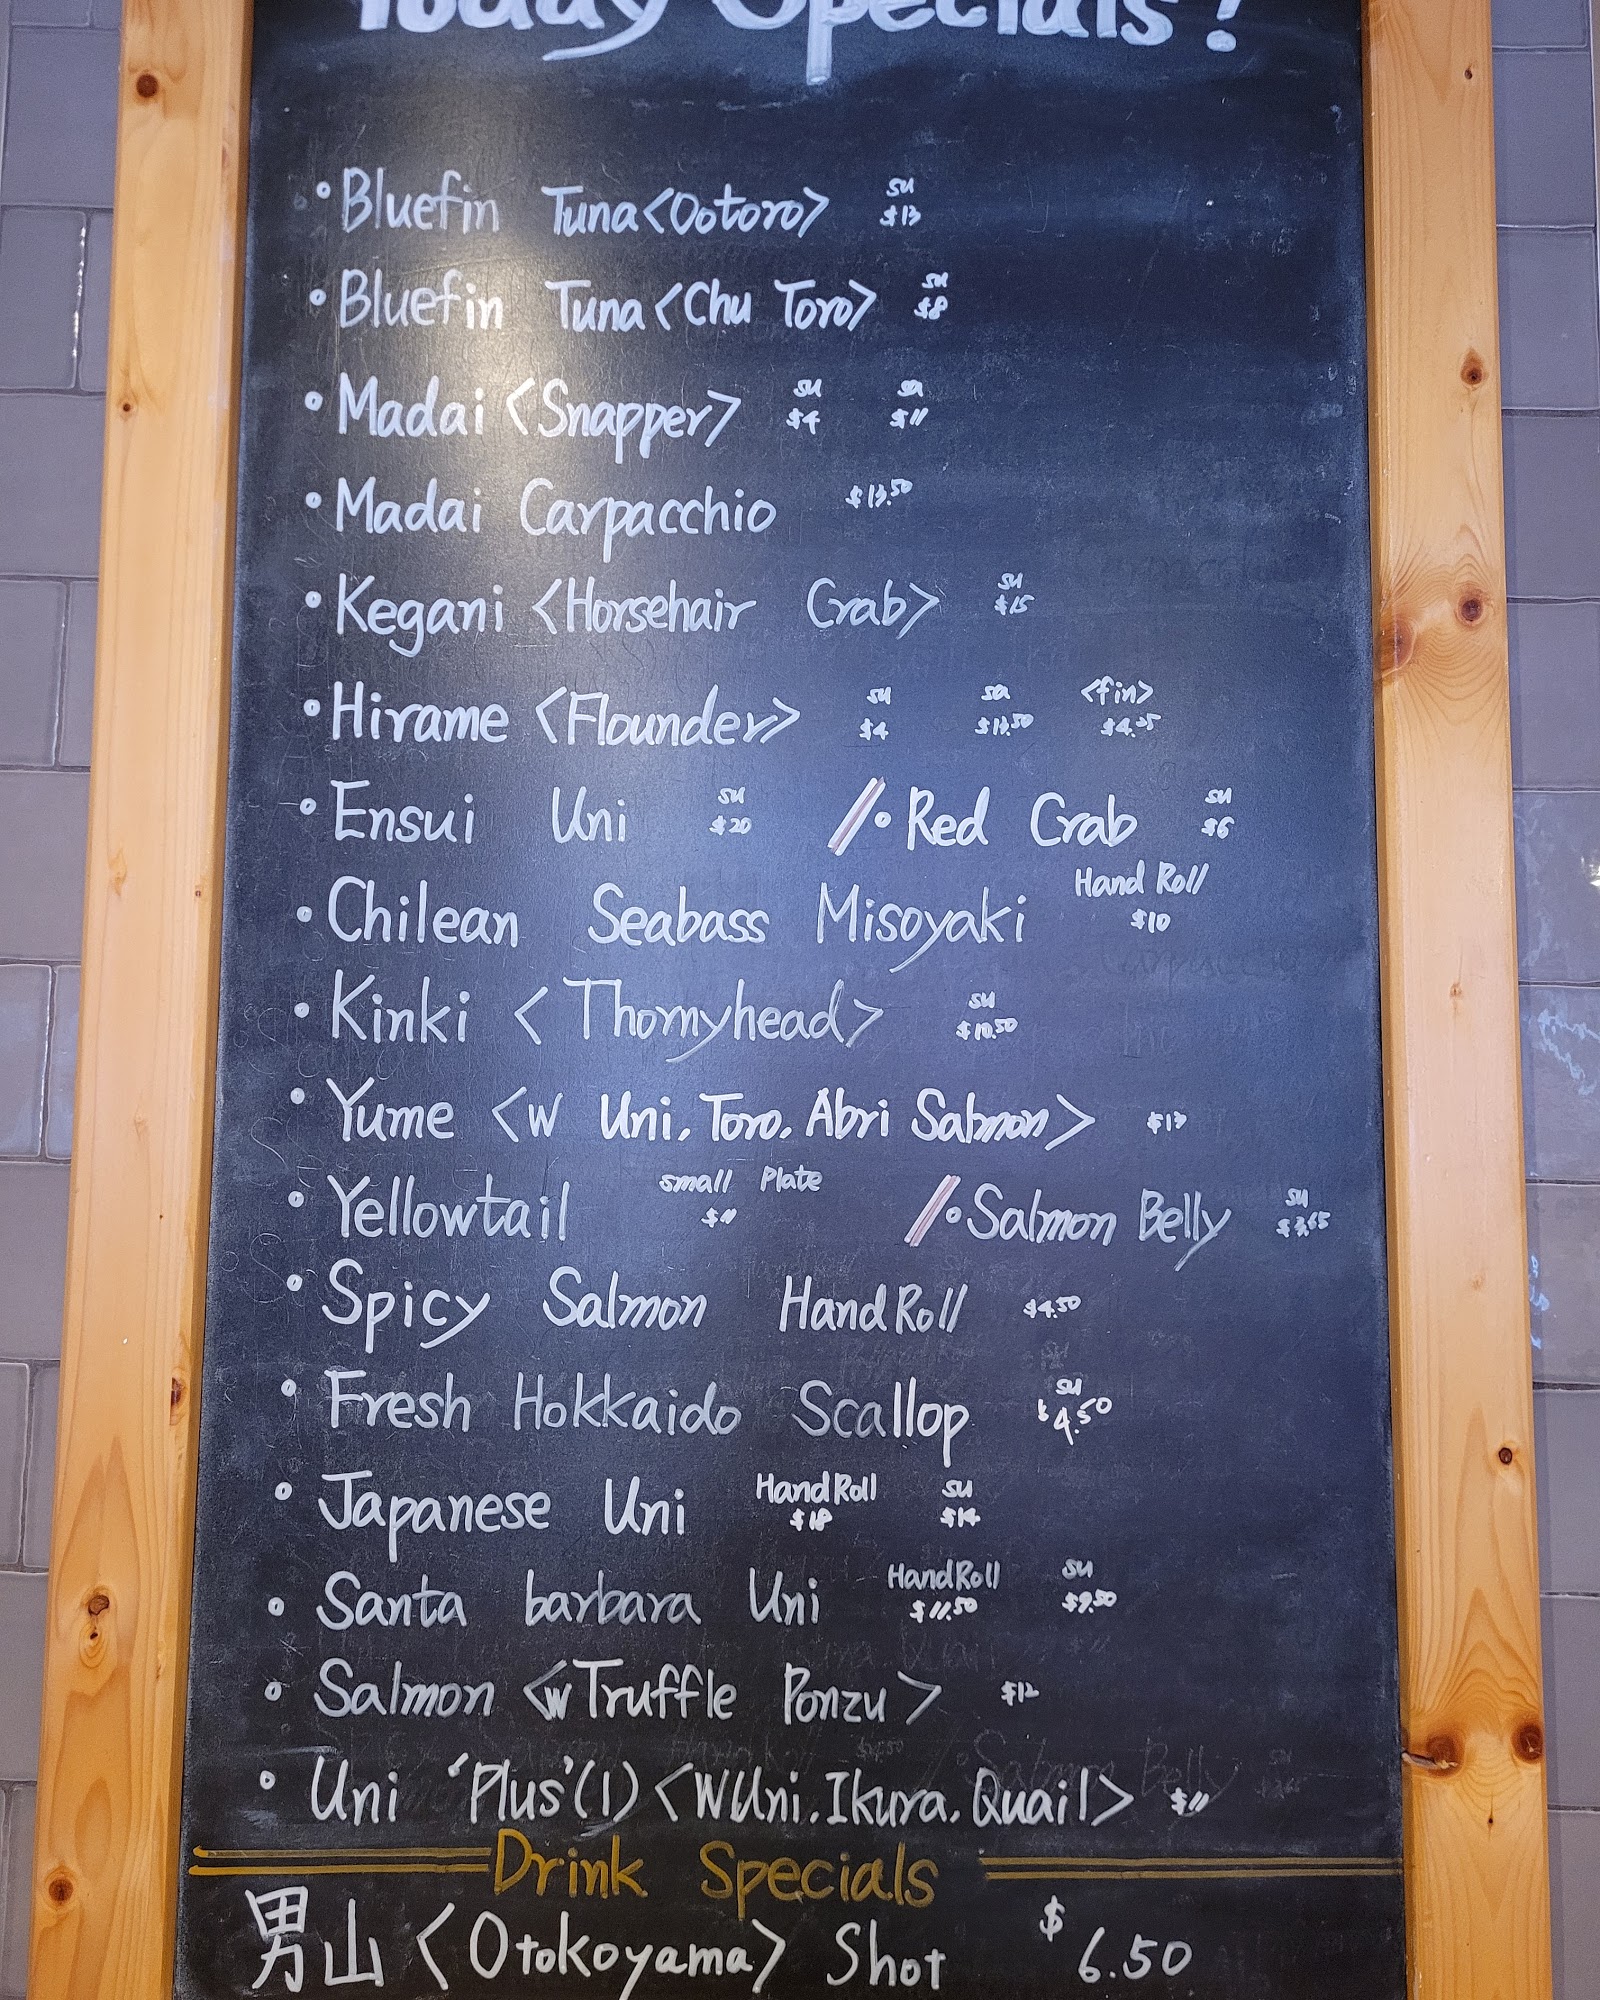 Today Specials!
• Bluefin Tuna <Ootoro> su $13
• Bluefin Tuna <Chu Toro> su $8
• Madai <Snapper> su $4 sa $11
• Madai Carpacchio $13.50
• Kegani <Horsehair Crab> su $15
• Hirame <Flounder> su $4 sa $13.50 <fin> $4.25
• Ensui Uni su $20 // • Red Crab su $6
• Chilean Seabass Misoyaki Hand Roll $10
• Kinki <Thornyhead> su $10.50
• Yume <w Uni, Toro, Abri Salmon> $13
• Yellowtail small Plate $11 // • Salmon Belly su $3.65
• Spicy Salmon Hand Roll $4.50
• Fresh Hokkaido Scallop su $4.50
• Japanese Uni Hand Roll $18 su $14
• Santa barbara Uni Hand Roll $11.50 su $9.50
• Salmon <w Truffle Ponzu> $12
• Uni 'Plus' (1) <W Uni, Ikura, Quail> $11
Drink Specials
男山 <Otokoyama> Shot $6.50